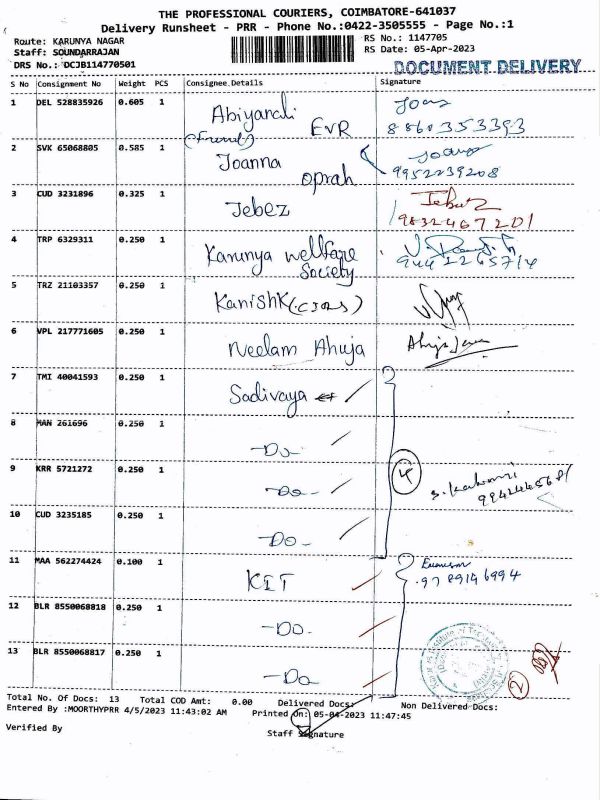 THE PROFESSIONAL COURIERS, COIMBATORE-641037
Delivery Runsheet - PRR - Phone No.:0422-3505555 - Page No.:1
Route: KARUNYA NAGAR
Staff: SOUNDARRAJAN
DRS No.: DCJB114770501
RS No.: 1147705
RS Date: 05-Apr-2023
DOCUMENT DELIVERY
S No Consignment No Weight PCS Consignee Details Signature
1 DEL 528835926 0.605 1
(Friend) EVR
2 SVK 65068805 0.585 1 Joanna
oprah 9952239208
3 CUD 3231896 0.325 1 Jebez
9832467201
4 TRP 6329311 0.250 1 Karunya welfare
Society
5 TRZ 21103357 0.250 1 Kanishk
6 VPL 217771605 0.250 1 Neelam Ahuja
7 TMI 40041593 0.250 1 Sadivaya
8 MAN 261696 0.250 1 -Do-
9 KRR 5721272 0.250 1 -Do- 4
10 CUD 3235185 0.250 1 -Do-
11 MAA 562274424 0.100 1 KIT
9789146994
12 BLR 8550068818 0.250 1 -Do-
13 BLR 8550068817 0.250 1 -Do
2
Total No. Of Docs: 13 Total COD Amt: 0.00 Delivered Docs: Non Delivered Docs:
Entered By :MOORTHYPRR 4/5/2023 11:43:02 AM Printed On: 05-04-2023 11:47:45
Verified By Staff Signature